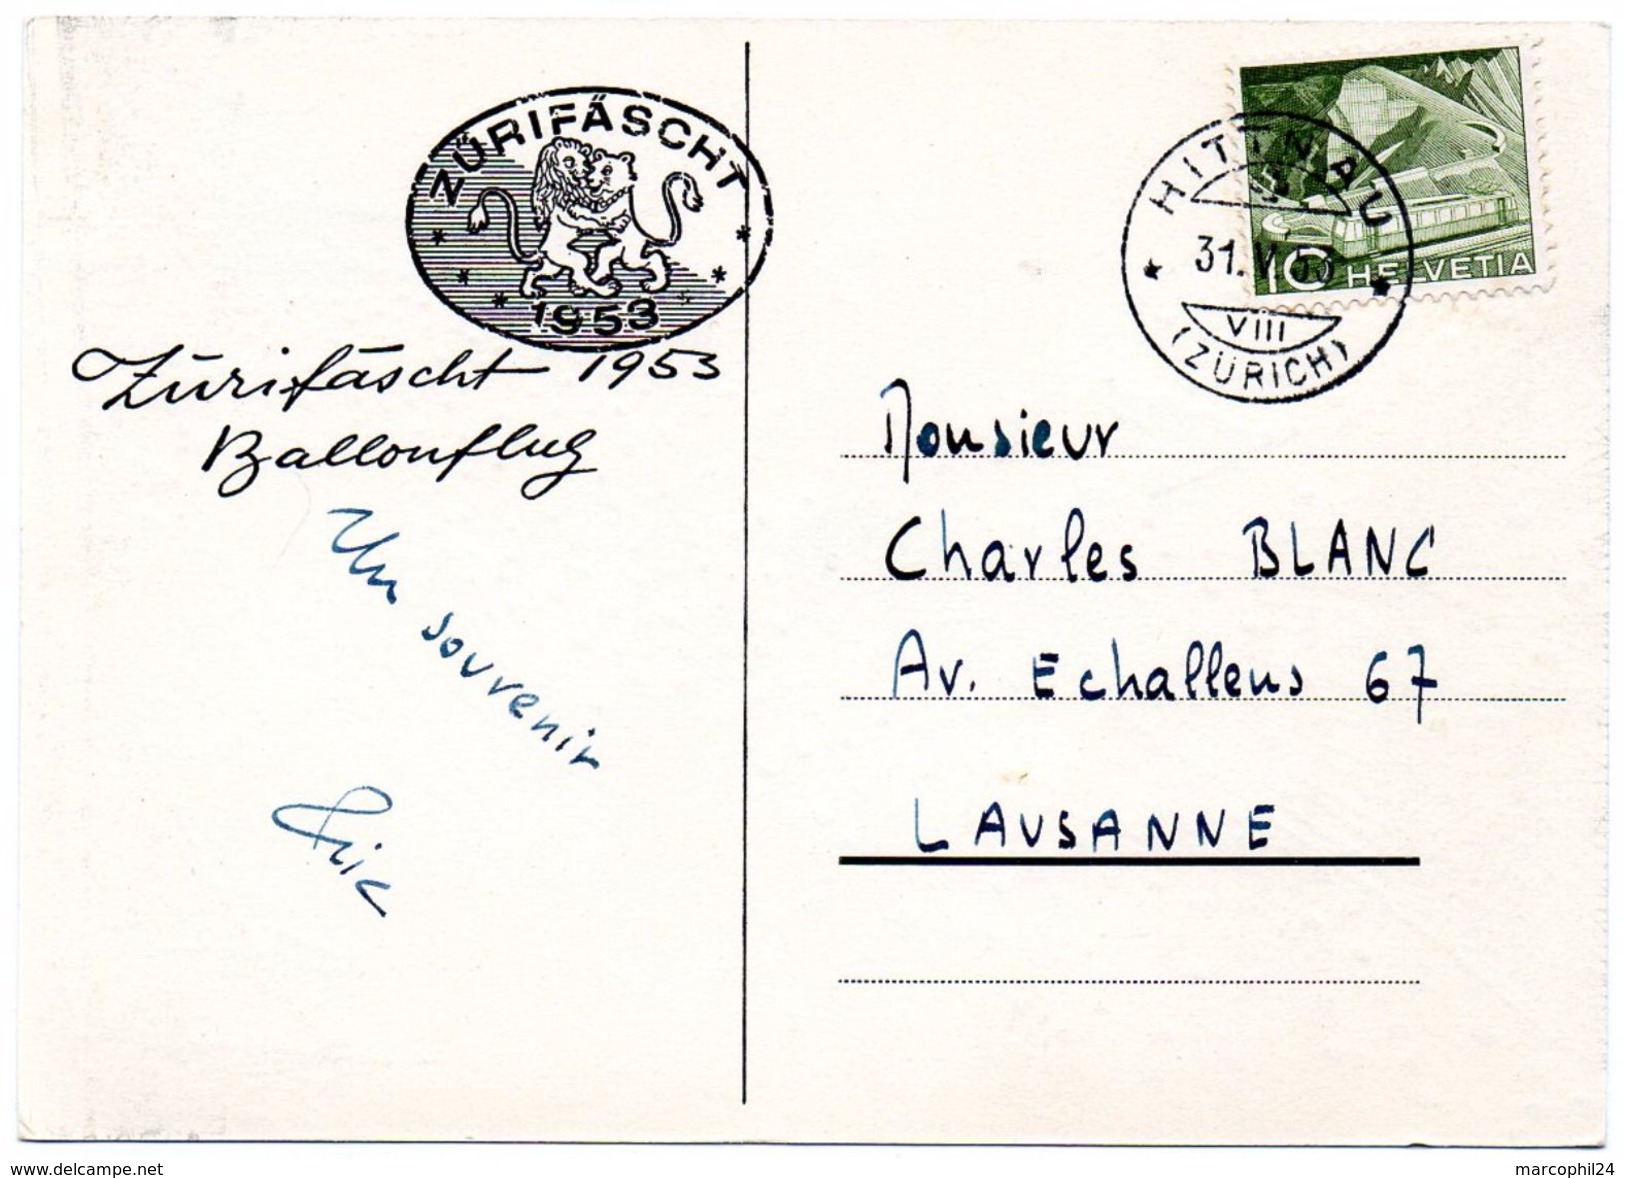 ZÜRIFÄSCHT
1953
Zürifäscht 1953
Ballonflug
Un souvenir
Eric
HITTNAU
31.V.53
VIII
(ZÜRICH)
10 HELVETIA
Monsieur
Charles BLANC
Av. Echallens 67
LAUSANNE
www.delcampe.net
marcophil24